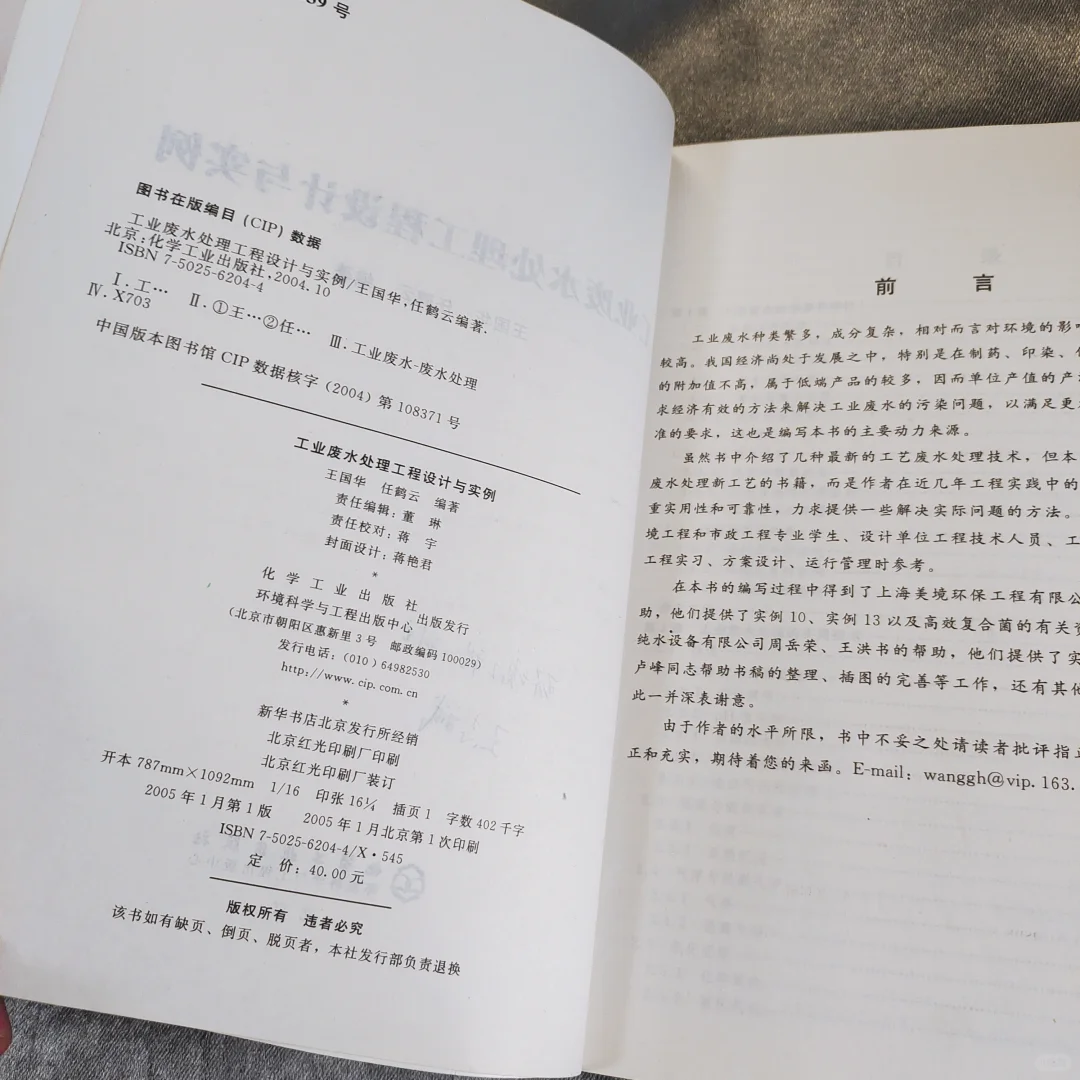 89 号
图书在版编目 (CIP) 数据
工业废水处理工程设计与实例/王国华,任鹤云编著.
北京:化学工业出版社,2004.10
ISBN 7-5025-6204-4
Ⅰ.工… Ⅱ.①王…②任… Ⅲ.工业废水-废水处理
Ⅳ.X703
中国版本图书馆 CIP 数据核字 (2004) 第 108371 号
工业废水处理工程设计与实例
王国华 任鹤云 编著
责任编辑: 董 琳
责任校对: 蒋 宇
封面设计: 蒋艳君
*
化 学 工 业 出 版 社
环境科学与工程出版中心 出版发行
(北京市朝阳区惠新里 3 号 邮政编码 100029)
发行电话: (010) 64982530
http://www.cip.com.cn
*
新华书店北京发行所经销
北京红光印刷厂印刷
北京红光印刷厂装订
开本 787mm×1092mm 1/16 印张 16¼ 插页 1 字数 402 千字
2005 年 1 月第 1 版 2005 年 1 月北京第 1 次印刷
ISBN 7-5025-6204-4/X·545
定 价: 40.00 元
版权所有 违者必究
该书如有缺页、倒页、脱页者,本社发行部负责退换
前 言
工业废水种类繁多,成分复杂,相对而言对环境的影
较高。我国经济尚处于发展之中,特别是在制药、印染、
的附加值不高,属于低端产品的较多,因而单位产值的产
求经济有效的方法来解决工业废水的污染问题,以满足更
准的要求,这也是编写本书的主要动力来源。
虽然书中介绍了几种最新的工艺废水处理技术,但本
废水处理新工艺的书籍,而是作者在近几年工程实践中的
重实用性和可靠性,力求提供一些解决实际问题的方法。
境工程和市政工程专业学生、设计单位工程技术人员、工
工程实习、方案设计、运行管理时参考。
在本书的编写过程中得到了上海美境环保工程有限公
助,他们提供了实例 10、实例 13 以及高效复合菌的有关资
纯水设备有限公司周岳荣、王洪书的帮助,他们提供了实
卢峰同志帮助书稿的整理、插图的完善等工作,还有其他
此一并深表谢意。
由于作者的水平所限,书中不妥之处请读者批评指正
正和充实,期待着您的来函。E-mail: wanggh@vip.163.